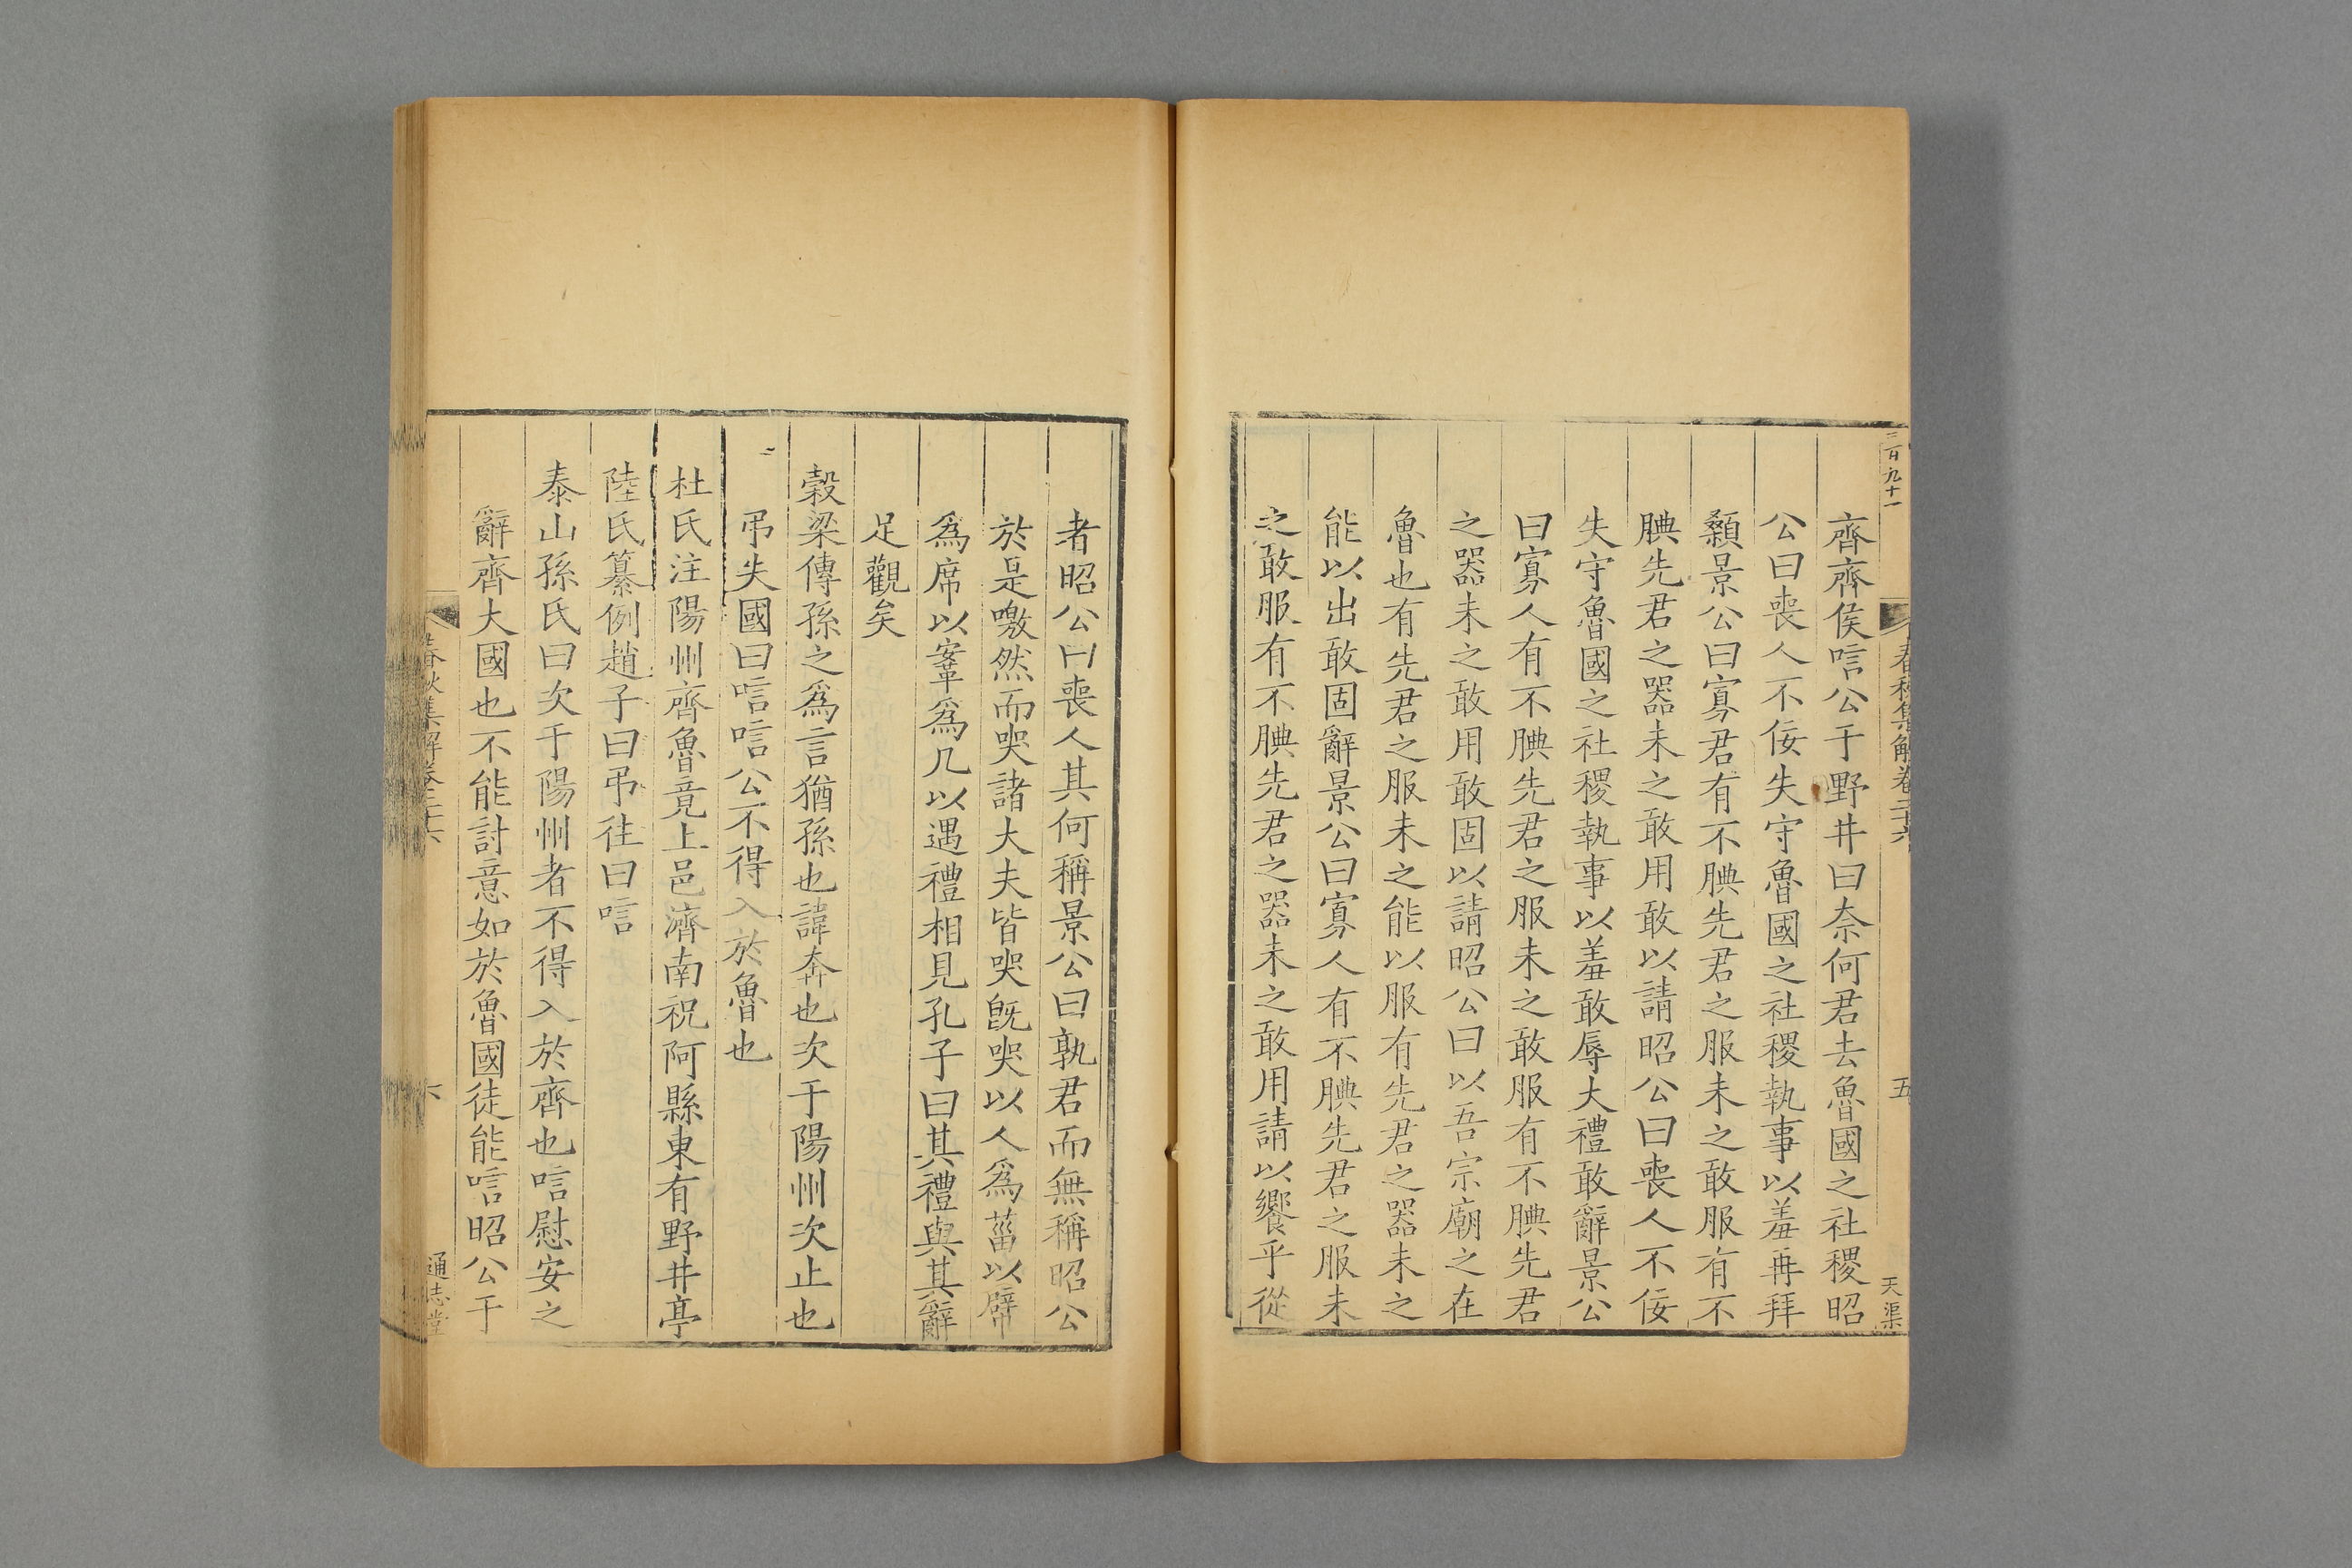 三百九十一
春秋集解卷二十六
五
天渠
齊齊侯唁公于野井曰奈何君去魯國之社稷昭
公曰喪人不佞失守魯國之社稷執事以羞再拜
顙景公曰寡君有不腆先君之服未之敢服有不
腆先君之器未之敢用敢以請昭公曰喪人不佞
失守魯國之社稷執事以羞敢辱大禮敢辭景公
曰寡人有不腆先君之服未之敢服有不腆先君
之器未之敢用敢固以請昭公曰以吾宗廟之在
魯也有先君之服未之能以服有先君之器未之
能以出敢固辭景公曰寡人有不腆先君之服未
之敢服有不腆先君之器未之敢用請以饗乎從
者昭公曰喪人其何稱景公曰孰君而無稱昭公
於是噭然而哭諸大夫皆哭旣哭以人爲菑以幦
爲席以鞌爲几以遇禮相見孔子曰其禮與其辭
足觀矣
穀梁傳孫之爲言猶孫也諱奔也次于陽州次止也
弔失國曰唁唁公不得入於魯也
杜氏注陽州齊魯竟上邑濟南祝阿縣東有野井亭
陸氏纂例趙子曰弔徃曰唁
泰山孫氏曰次于陽州者不得入於齊也唁慰安之
辭齊大國也不能討意如於魯國徒能唁昭公于
春秋集解卷二十六
六
通志堂